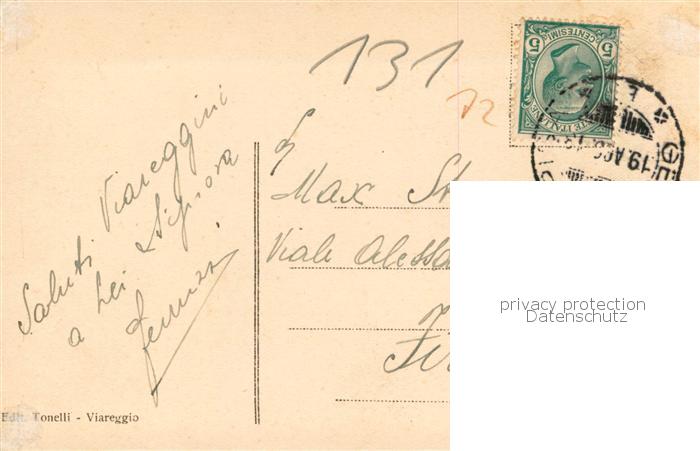 131
12
5 CENTESIMI 5
19 AGO
Saluti Viareggini
a Lei Signora
Max St
Viale Alessa
Fi
privacy protection
Datenschutz
Edit. Tonelli - Viareggio